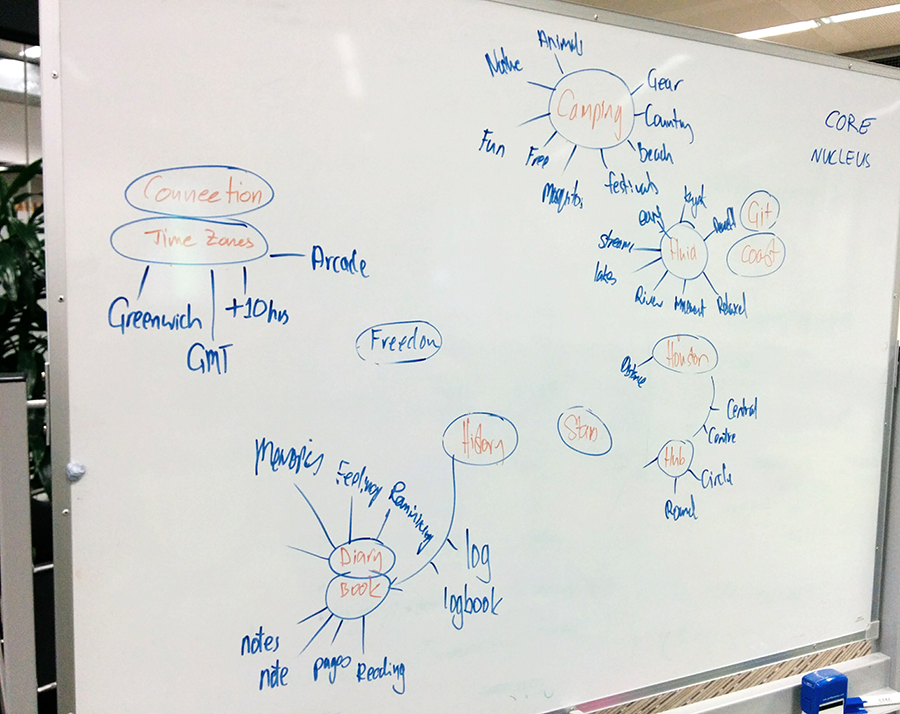 Animals
Native
Gear
Camping
Country
CORE
NUCLEUS
Fun
Free
Beach
Mosquitos
festivals
Connection
Time Zones
Arcade
Greenwich
+10 hrs
GMT
Git
Coast
Fluid
stream
lakes
River
Movement
Relaxed
Freedom
Houston
Distance
Central
Centre
Hub
Circle
Round
History
Stan
Memories
Feelings
Reminiscing
Diary
Book
log
logbook
notes
note
pages
Reading